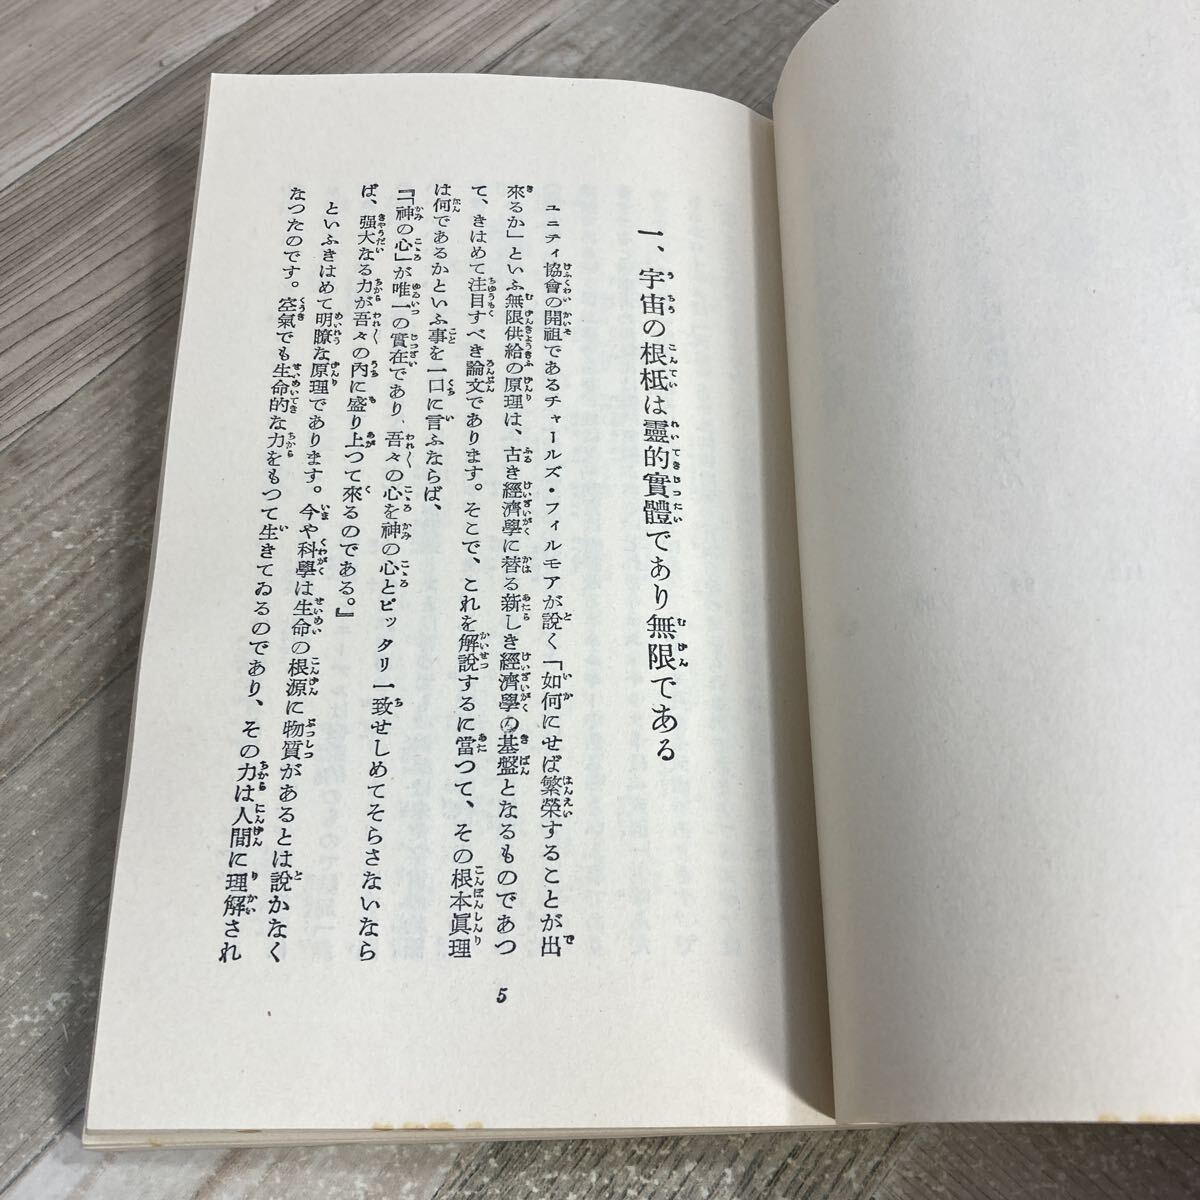 一、宇宙の根柢は靈的實體であり無限である
ユニティ協會の開祖であるチャールズ・フィルモアが説く「如何にせば繁榮することが出
來るか」といふ無限供給の原理は、古き經濟學に替る新しき經濟學の基盤となるものであつ
て、きはめて注目すべき論文であります。そこで、これを解説するに當つて、その根本眞理
は何であるかといふ事を一口に言ふならば、
『「神の心」が唯一の實在であり、吾々の心を神の心とピッタリ一致せしめてそらさないなら
ば、強大なる力が吾々の内に盛り上つて來るのである。』
といふきはめて明瞭な原理であります。今や科學は生命の根源に物質があるとは説かなく
なつたのです。空氣でも生命的な力をもつて生きてゐるのであり、その力は人間に理解され
5